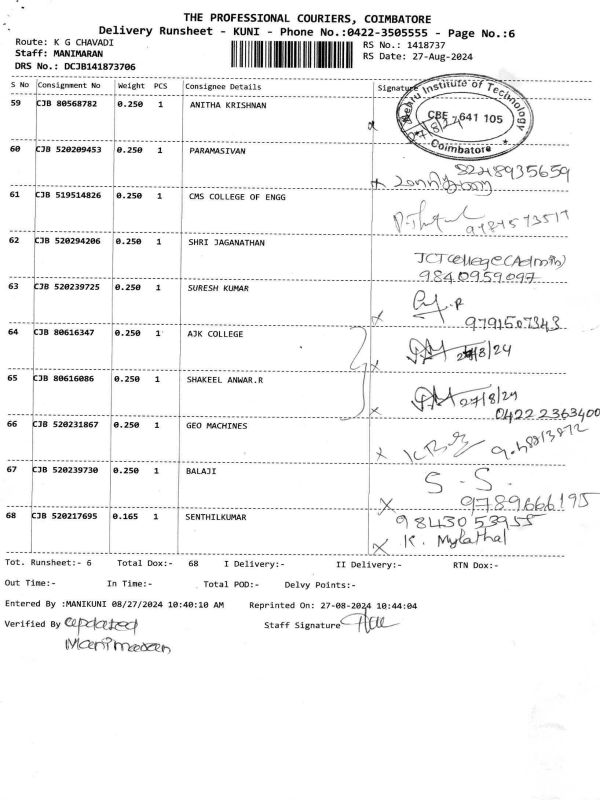 THE PROFESSIONAL COURIERS, COIMBATORE
Delivery Runsheet - KUNI - Phone No.:0422-3505555 - Page No.:6
Route: K G CHAVADI
RS No.: 1418737
Staff: MANIMARAN
RS Date: 27-Aug-2024
DRS No.: DCJB141873706
S No Consignment No Weight PCS Consignee Details Signature
Nehru Institute of Technology
CBE - 641 105
* Coimbatore *
59 CJB 80568782 0.250 1 ANITHA KRISHNAN
60 CJB 520209453 0.250 1 PARAMASIVAN
8248935659
61 CJB 519514826 0.250 1 CMS COLLEGE OF ENGG
62 CJB 520294206 0.250 1 SHRI JAGANATHAN
JCT college (Admin)
9840959097
63 CJB 520239725 0.250 1 SURESH KUMAR
9791507343
64 CJB 80616347 0.250 1 AJK COLLEGE
27/8/24
65 CJB 80616086 0.250 1 SHAKEEL ANWAR.R
27/8/24
0422 2363400
66 CJB 520231867 0.250 1 GEO MACHINES
67 CJB 520239730 0.250 1 BALAJI
S. S.
9789666195
68 CJB 520217695 0.165 1 SENTHILKUMAR
9843053955
K. Mylathal
Tot. Runsheet:- 6 Total Dox:- 68 I Delivery:- II Delivery:- RTN Dox:-
Out Time:- In Time:- Total POD:- Delvy Points:-
Entered By :MANIKUNI 08/27/2024 10:40:10 AM Reprinted On: 27-08-2024 10:44:04
Verified By updated Staff Signature
Manimaran